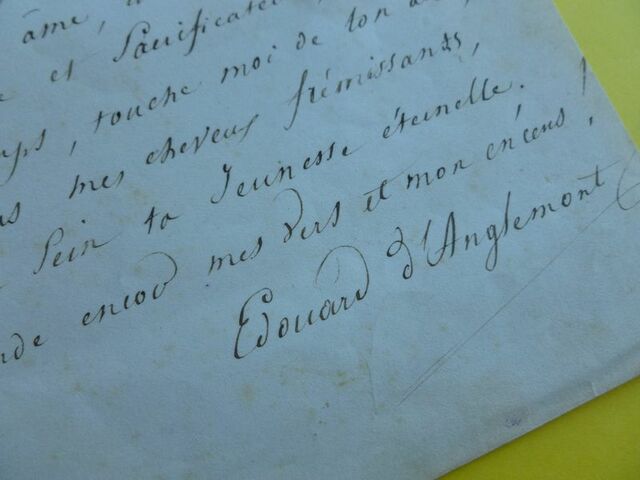 âme,
et Sacrificateur
, touche moi de ton
mes cheveux frémissants,
Sein ta Jeunesse éternelle.
encor mes vers et mon encens !
Edouard d'Anglemont